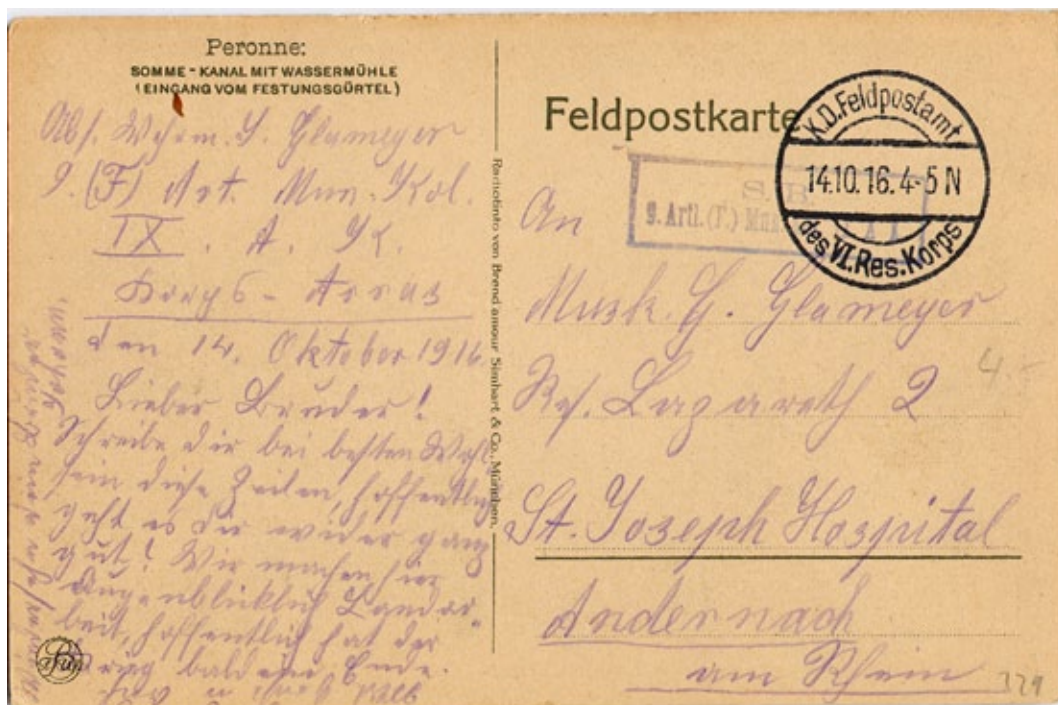 Peronne:
SOMME-KANAL MIT WASSERMÜHLE
(EINGANG VOM FESTUNGSGÜRTEL)
Abs. Wehrm. Glameyer
9. (F) Art. Mun. Kol.
IX. A. K.
Korps-Arras
den 14. Oktober 1916.
Lieber Bruder!
Schreibe dir bei besten Wohl
sein diese Zeilen, hoffentlich
geht es dir wider ganz
gut! Wir machen hier
Augenblicklich Landar-
beit, hoffentlich hat der
Krieg bald ein Ende.
von Brend'amour Simhart & Co., München.
Feldpostkarte
K.D. Feldpostamt
14.10.16. 4-5 N
des VI. Res. Korps
S. B.
9. Artl. (F.)
An
Musk. G. Glameyer
Lazareth 2
St. Joseph Hospital
Andernach
am Rhein
4.-